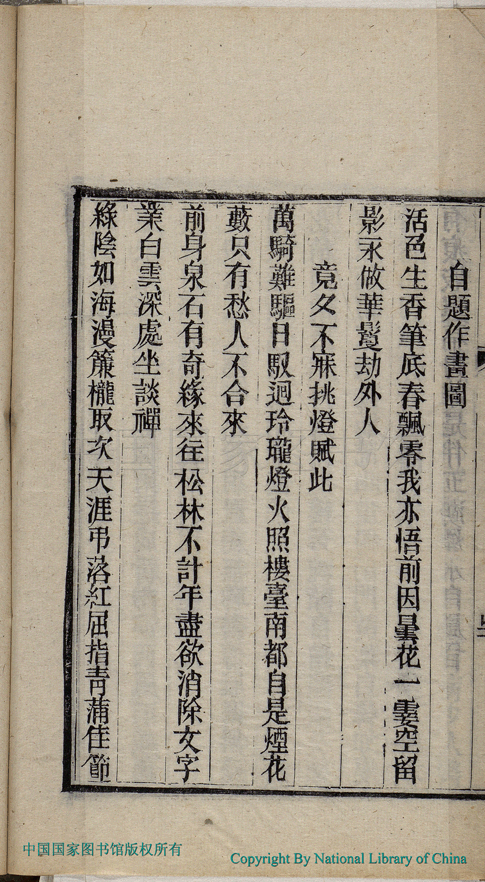 自題作畫圖
活色生香筆底春飄零我亦悟前因曇花一霎空留
影永做華鬘劫外人
竟夕不寐挑燈賦此
萬騎難驅日馭迴玲瓏燈火照樓臺南都自是煙花
藪只有愁人不合來
前身泉石有奇緣來往松林不計年盡欲消除文字
業白雲深處坐談禪
綠陰如海漫簾櫳取次天涯弔落紅屈指青蒲佳節
中国国家图书馆版权所有
Copyright By National Library of China